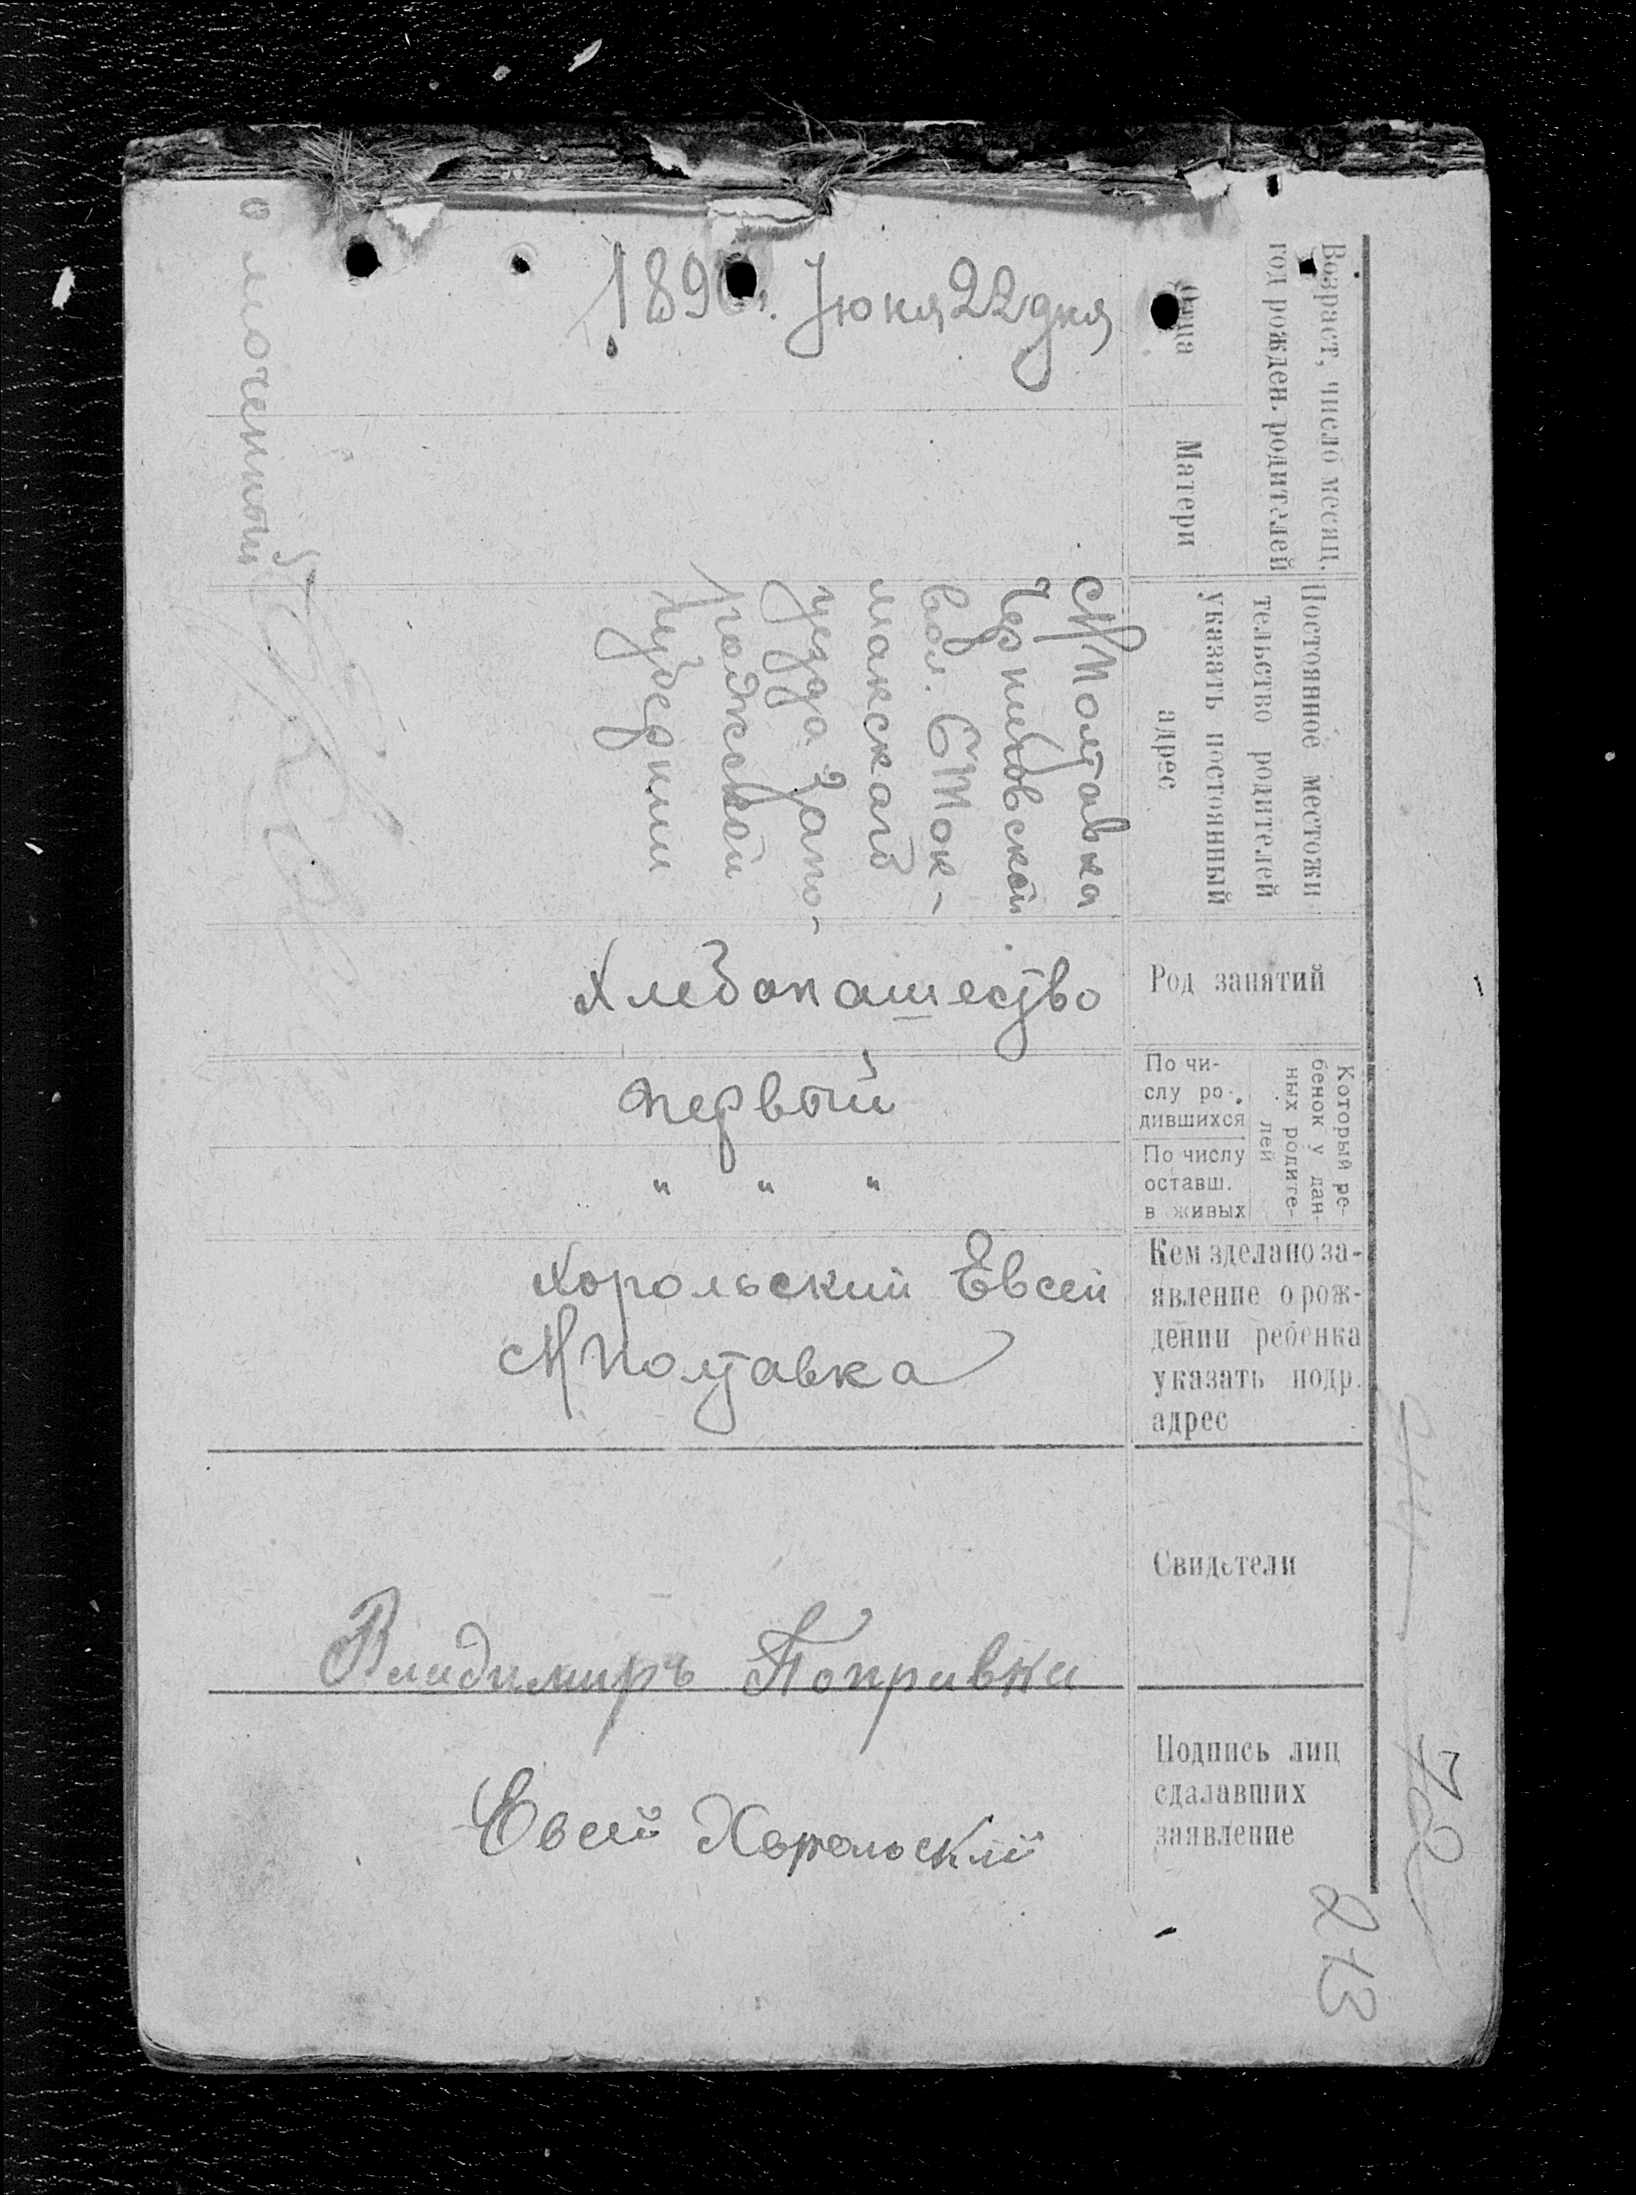 Возраст, число месяц.
год рожден. родителей
Отца
Июня 22 дня
Матери
Постоянное местожи
тельство родителей
указать постоянный
адрес
Полтавка
Черниговской
вол. Б Ток-
макского
уезда Запо-
рожской
Губернии
Род занятий
Хлебопашество
Который ре-
бенок у дан-
ных родите-
лей
По чи-
слу ро-
дившихся
первый
По числу
оставш.
в живых
" " "
Кем зделано за-
явление о рож-
дении ребенка
указать подр.
адрес
Хорольский Евсей
Полтавка
Свидетели
Владимиръ Поправка
Подпись лиц
сдалавших
заявление
Евсей Хорольский
72
213